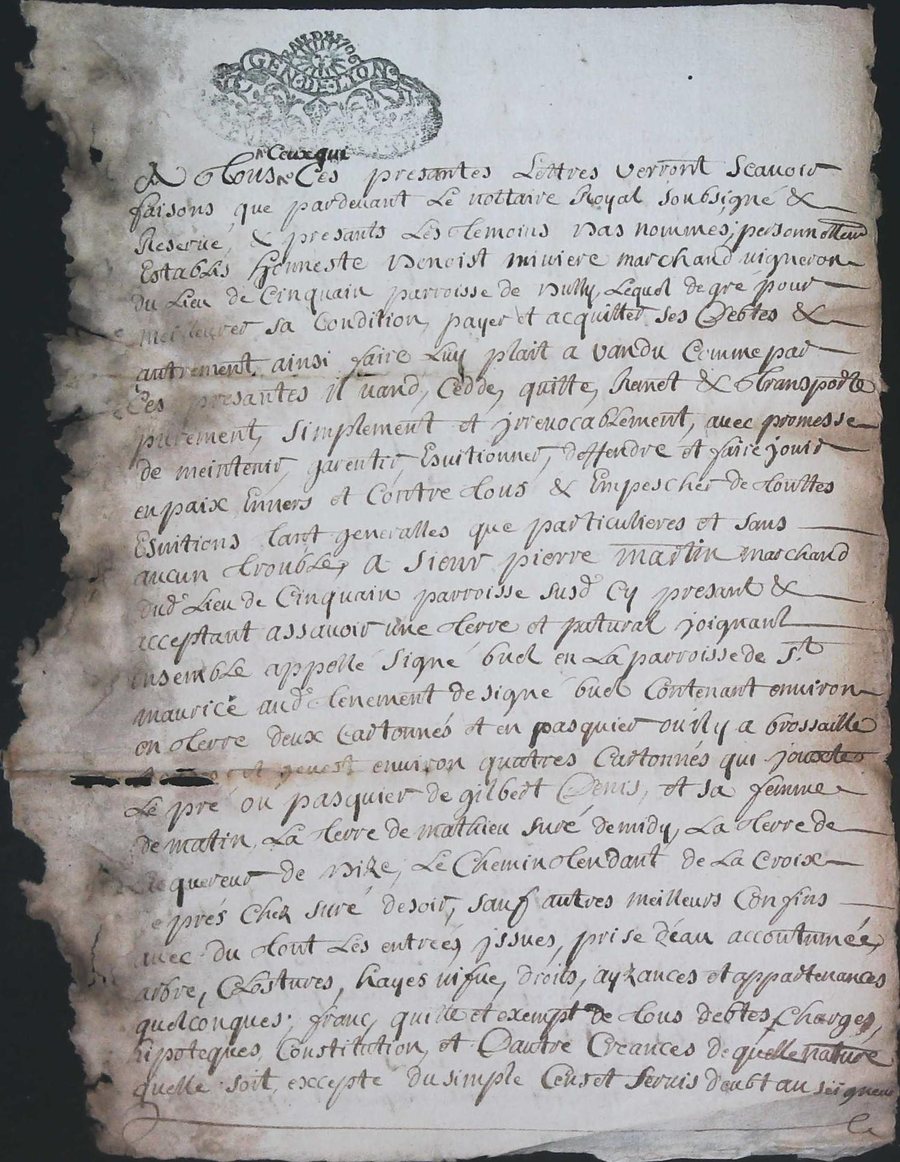 BAIL DE 1706
GEN DE LION
Ceux qui
A Tous Ces presantes Lettres verront Scavoir
faisons que pardevant Le nottaire Royal soubsigné &
Reservé, & presants Les temoins bas nommés, personnellemt
Establis honneste benoist miviere marchand vigneron
du Lieu de Cinquain parroisse de nully, Lequel de gré pour
meilleurer sa Condition, payer et acquitter ses Debtes &
autrement ainsi faire Luy plait a vandu Comme par
Ces presantes il vand, Cedde, quitte, Remet & transporte
purement, simplement et jrrevocablement, avec promesse
de meintenir, garentir, Esvitionner, deffendre et faire jouir
en paix Envers et Contre tous & Empescher de touttes
Esvitions tant generalles que particulieres et sans
aucun trouble, A sieur pierre martin marchand
dud. Lieu de Cinquain parroisse susd. Cy presant &
acceptant assavoir une terre et patural joignant
Ensemble appellé signé buel en La parroisse de St
maurice aud. tenement de signé buel Contenant environ
en terre deux Cartonnés et en pasquier ou il y a brossaille
et genest environ quatres Cartonnés qui jouxte
Le pré ou pasquier de gilbert Denis, et sa femme
de matin, La terre de mathieu suré de midy, La terre de
quereur de bize, Le Chemin tendant de La Croix
prés Chez suré de soir, sauf autres meilleurs Confins
avec du tout Les entrées, jssues, prise d'eau accoutumée,
arbre, Clostures, hayes vifve, droits, ayzances et appartenances
quelconques, franc, quitte et exempt de tous debtes, Charges,
hipoteques, Constitution, et D'autre Creances de quelle nature
quelle soit, excepte du simple Cens et servis deubt au seigneur
Le